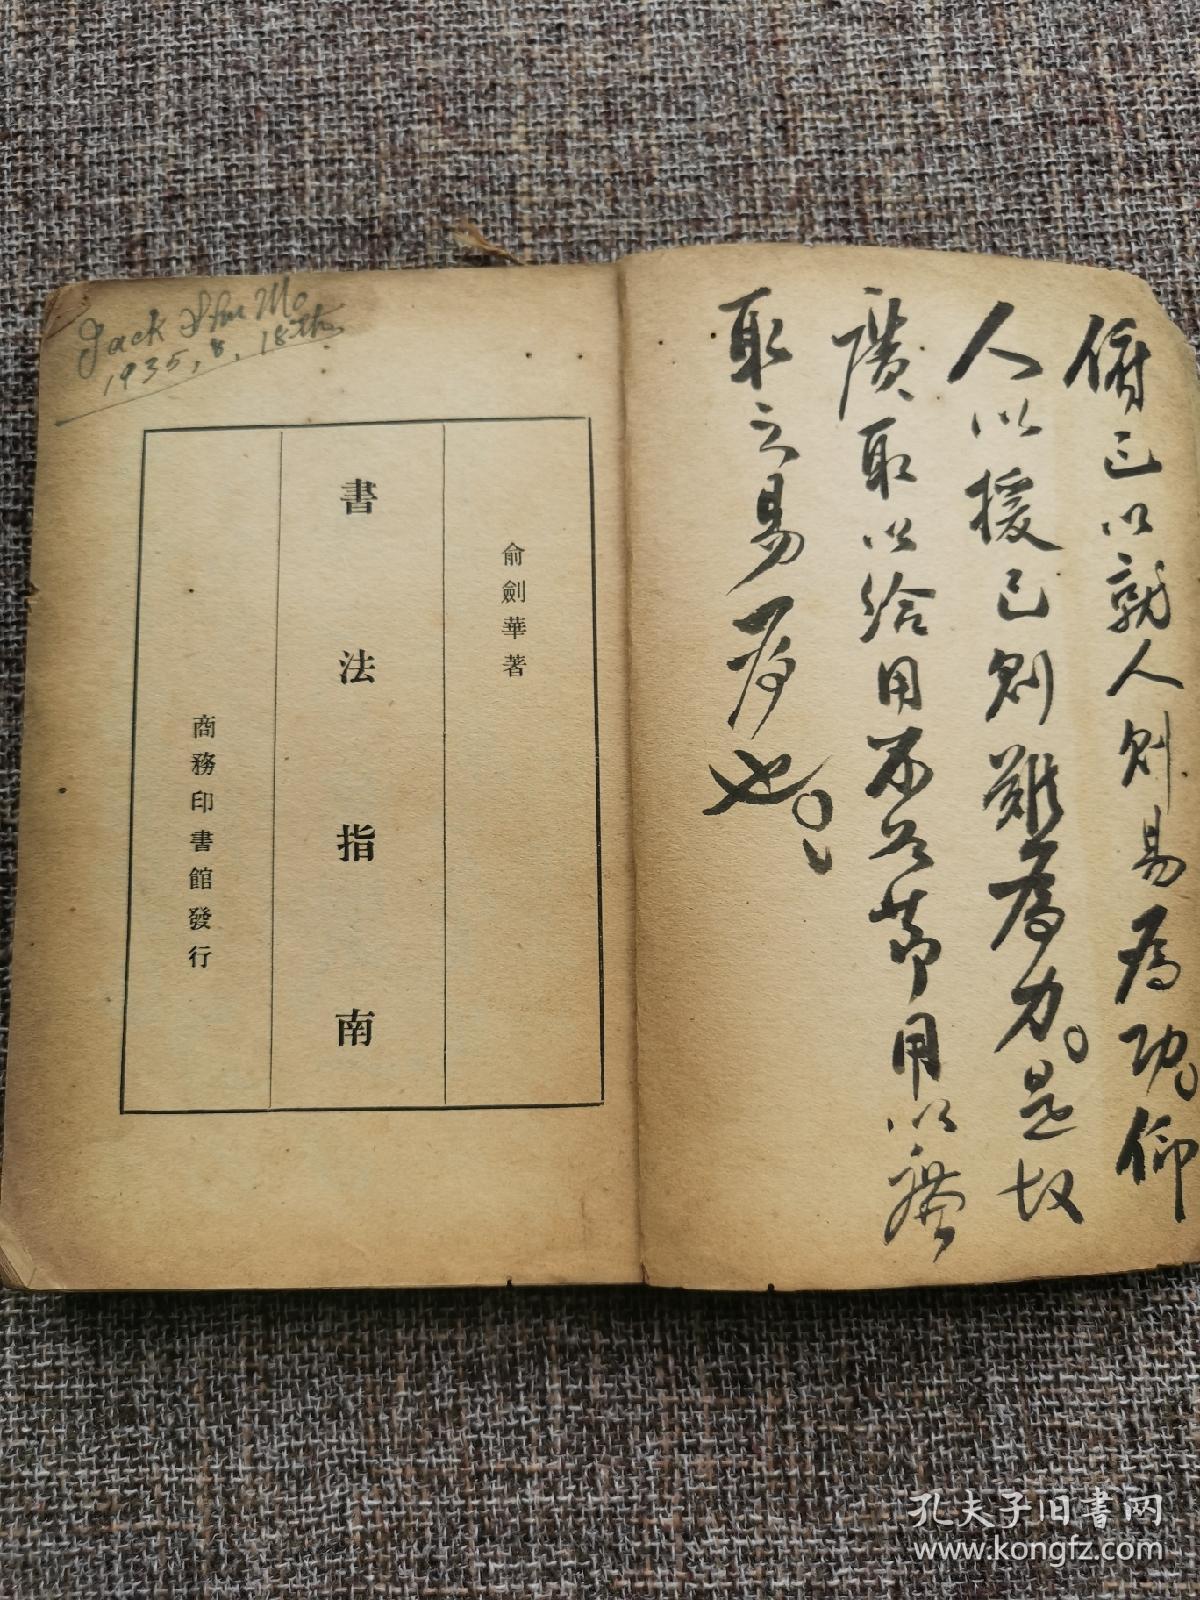 俯己以就人則易為功、仰
人以援己則難為力。是故
廣取以給用不如節用以廉
取之易為也。
Jack Mo
1935, 8, 18th
俞劍華著
書法指南
商務印書館發行
孔夫子旧書网
www.kongfz.com